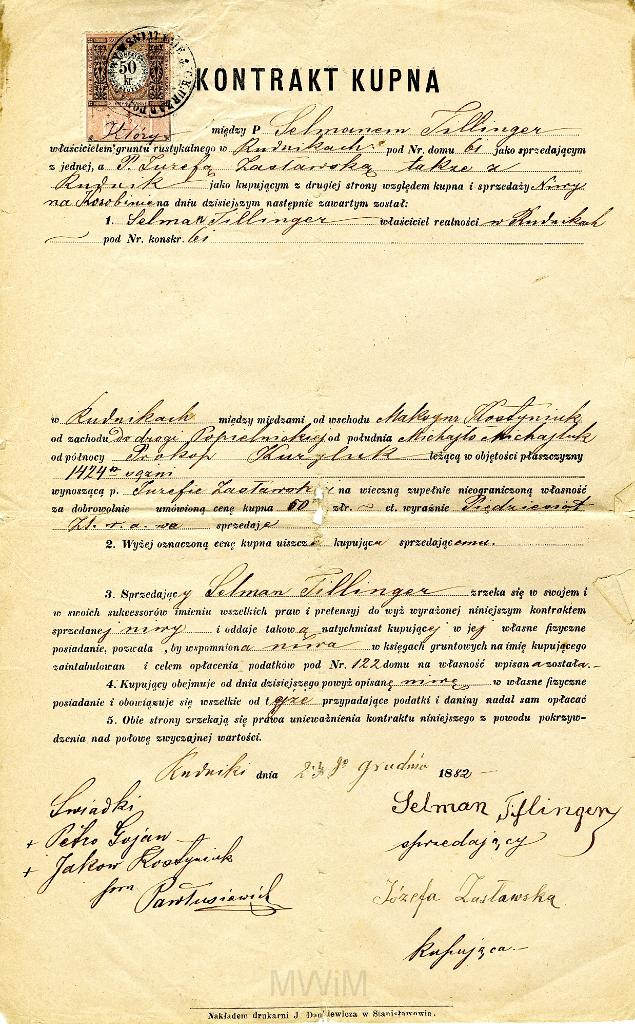 50
kr
KONTRAKT KUPNA
Który
między P. Selmanem Tillinger
właścicielem gruntu rustykalnego w Rudnikach pod Nr. domu 61 jako sprzedającym
z jednej, a P. Jozefą Zastawską także z
Rudnik jako kupującym z drugiej strony względem kupna i sprzedaży Niwy
na dniu dzisiejszym następnie zawartym został:
1. Selman Tillinger właściciel realności w Rudnikach
pod Nr. konskr. 61
w Rudnikach między miedzami od wschodu Maksym Kostyniuk
od zachodu do drogi Popielnickiej od południa Michajło Michajluk
od północy Prokop Kuryluk leżącą w objętości płaszczyzny
1424
wynoszącą p. Jozefie Zastawskiej na wieczną zupełnie nieograniczoną własność
za dobrowolnie umówioną cenę kupna 50 złr. ct. wyraźnie Piędziesiąt
Zł. w. a. sprzedaje
2. Wyżej oznaczoną cenę kupna uiszcza kupująca sprzedającemu.
3. Sprzedający Selman Tillinger zrzeka się w swojem i
w swoich sukcessorów imieniu wszelkich praw i pretensyj do wyż wyrażonej niniejszym kontraktem
sprzedanej niwy i oddaje takową natychmiast kupującej w jej własne fizyczne
posiadanie, pozwala, by wspomniona niwa w księgach gruntowych na imię kupującego
zaintabulowan i celem opłacenia podatków pod Nr. 122 domu na własność wpisana została.
4. Kupujący obejmuje od dnia dzisiejszego powyż opisaną niwę w własne fizyczne
posiadanie i obowiązuje się wszelkie od tejże przypadające podatki i daniny nadal sam opłacać
5. Obie strony zrzekają się prawa unieważnienia kontraktu niniejszego z powodu pokrzyw-
dzenia nad połowę zwyczajnej wartości.
Rudniki dnia Grudnia 1882
Swiadki
Selman Tillinger
+ Petro Gojan
sprzedający
+ Jakow Kostyniuk
Józefa Zastawska
Pawlusiewicz
kupująca
MWiM
Nakładem drukarni J. Dankiewicza w Stanisławowie.